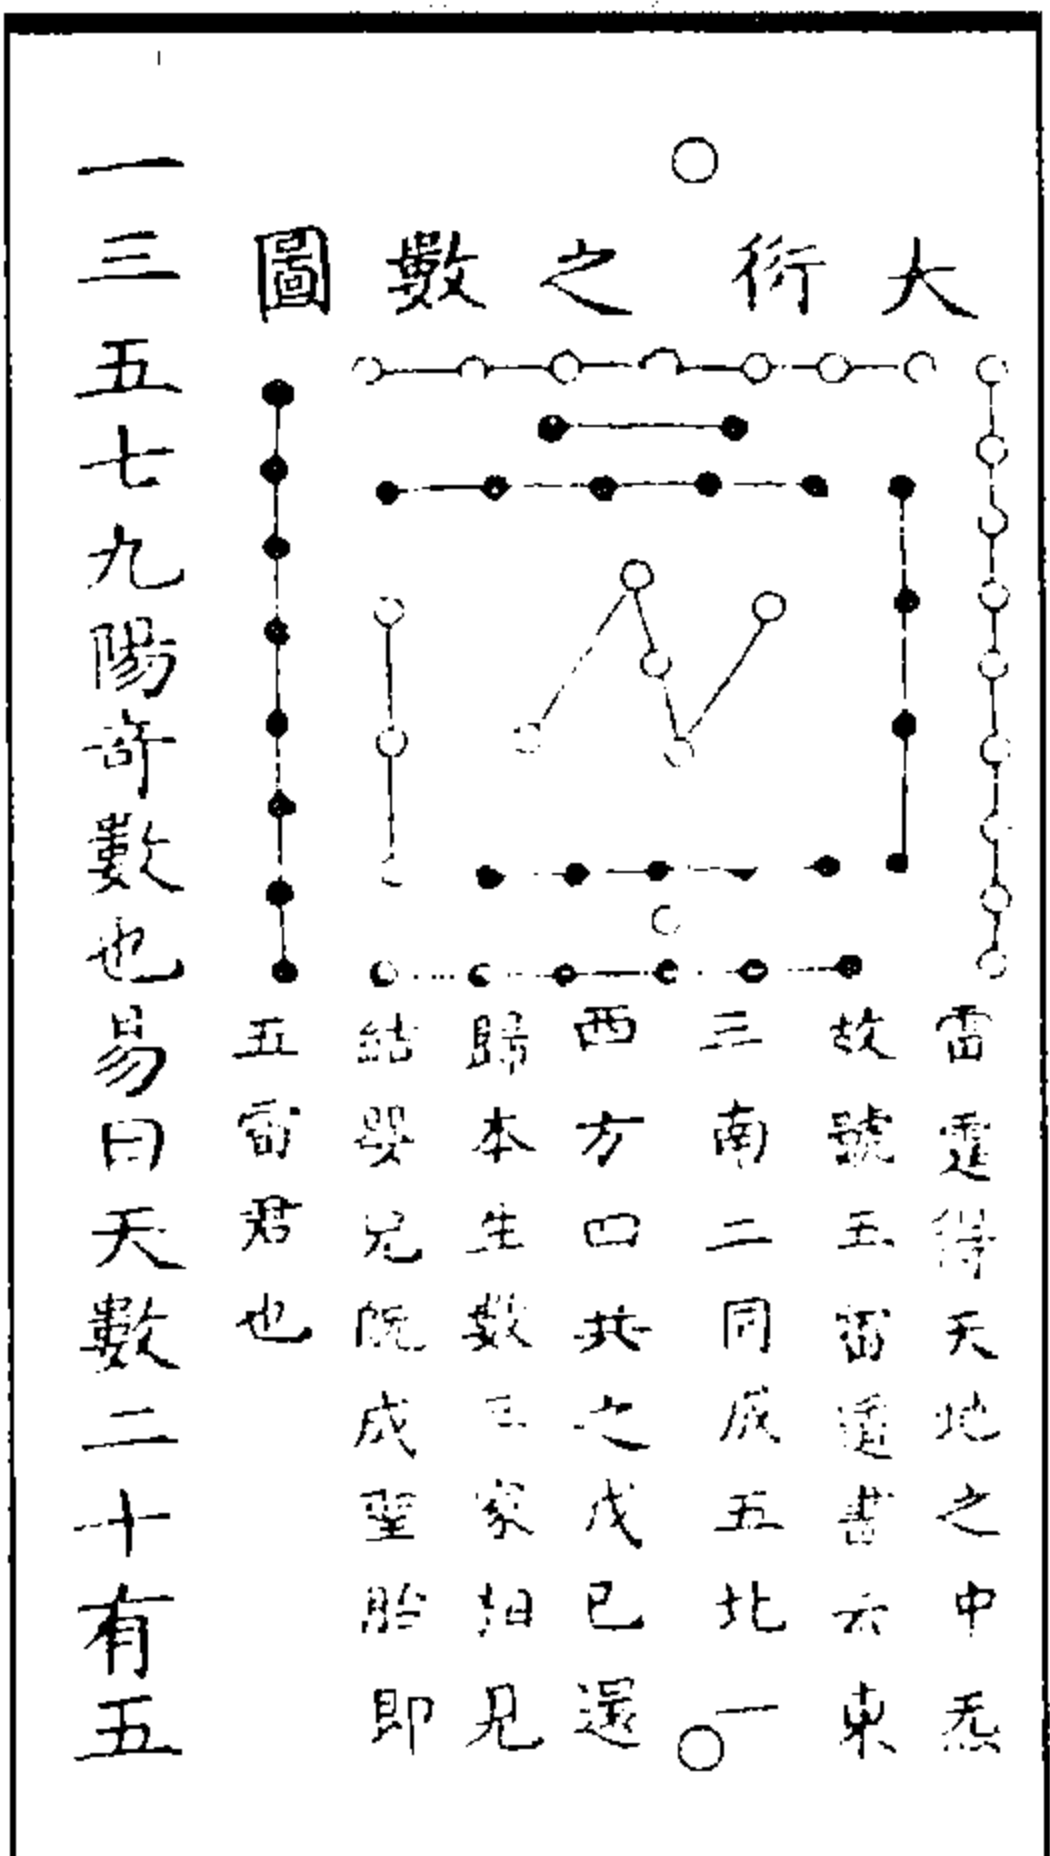 大衍之數圖
雷霆得天地之中炁
故號五雷遁書云東
三南二同成五北一
西方四共之戊己還
歸本生數三家相見
結嬰兒既成聖胎即
五雷君也
一三五七九陽奇數也易曰天數二十有五